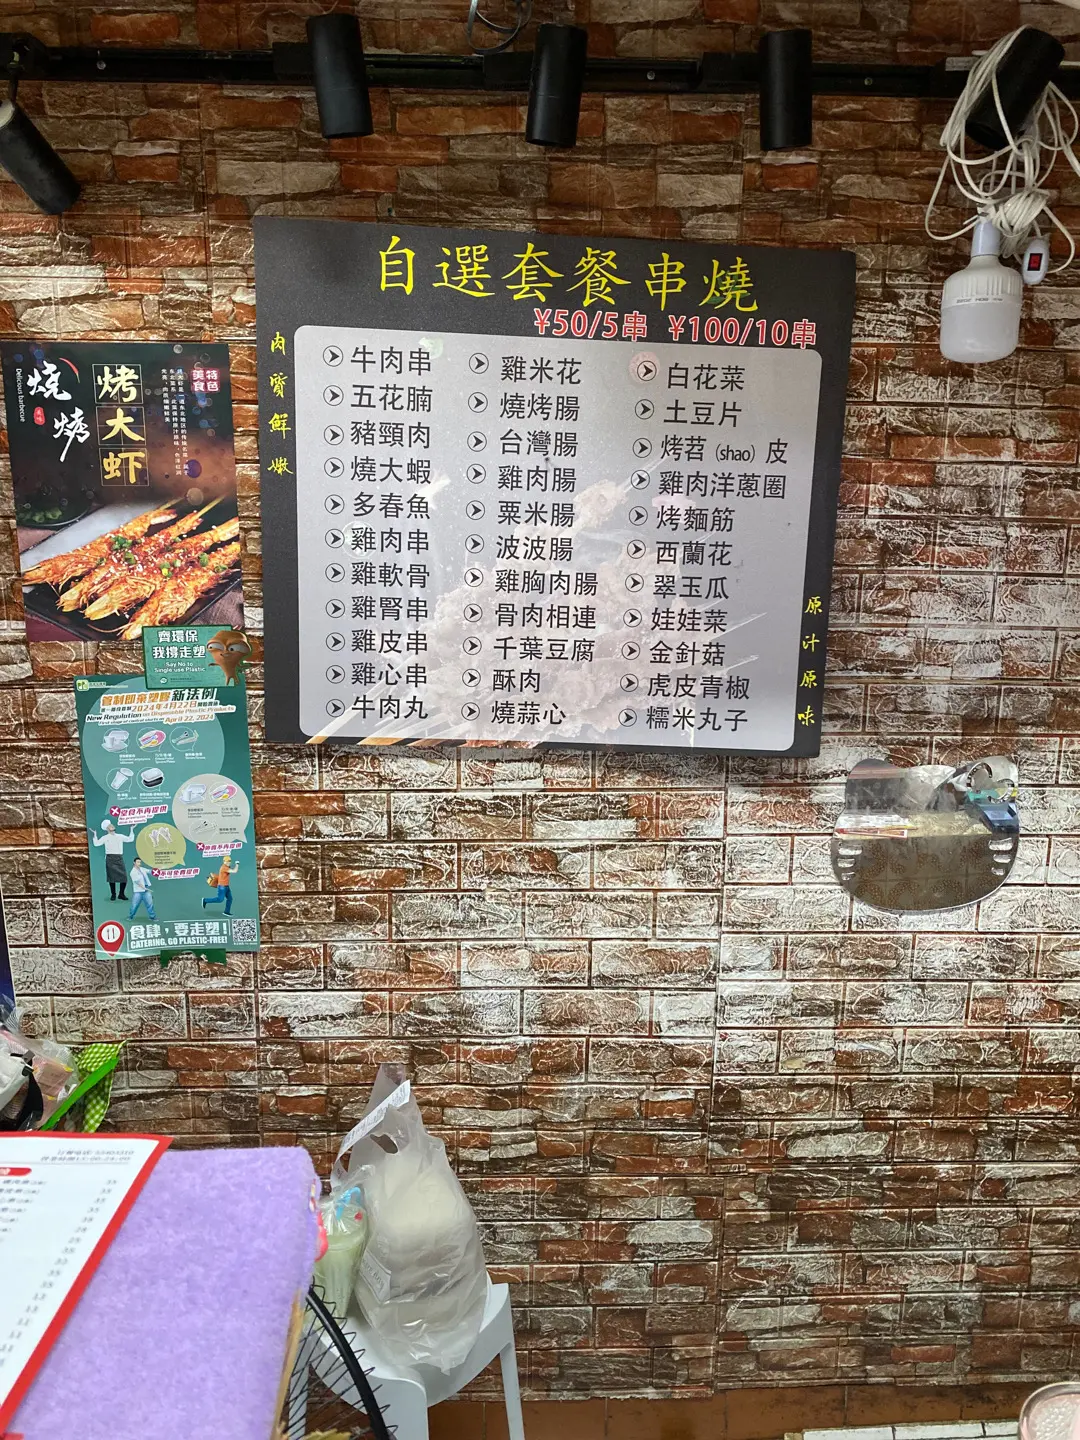 自選套餐串燒
¥50/5串 ¥100/10串
肉質鮮嫩
牛肉串
五花腩
豬頸肉
燒大蝦
多春魚
雞肉串
雞軟骨
雞腎串
雞皮串
雞心串
牛肉丸
雞米花
燒烤腸
台灣腸
雞肉腸
粟米腸
波波腸
雞胸肉腸
骨肉相連
千葉豆腐
酥肉
燒蒜心
白花菜
土豆片
烤苕(shao)皮
雞肉洋蔥圈
烤麵筋
西蘭花
翠玉瓜
娃娃菜
金針菇
虎皮青椒
糯米丸子
原汁原味
Delicious barbecue
燒烤
烤大虾
特色
美食
齊環保
我撐走塑
Say No to
Single-use Plastic
管制即棄塑膠新法例
2024年4月22日
New Regulation on Disposable Plastic Products
April 22, 2024
堂食不再提供
外賣不再提供
不可免費提供
食肆，要走塑！
CATERING, GO PLASTIC-FREE!